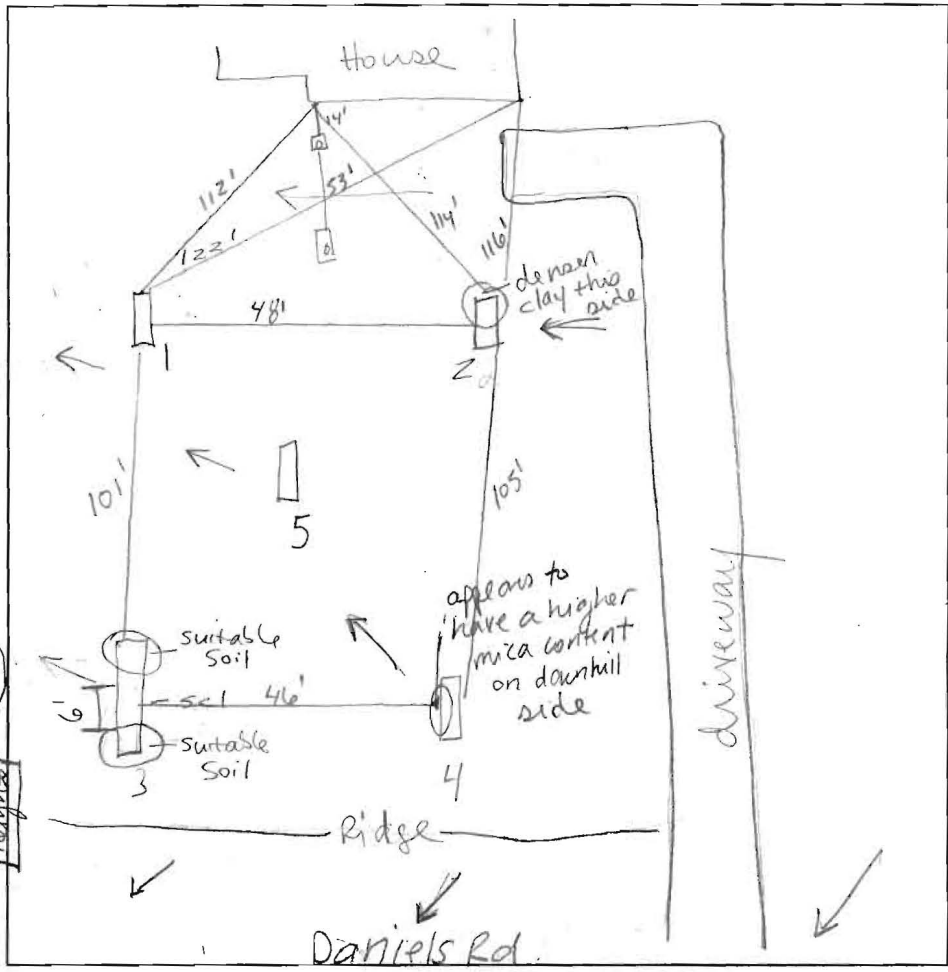 House
14'
D
112'
53'
122'
114'
116'
denser
clay this
side
48'
1
2
101'
5
105'
appears to
have a higher
mica content
on downhill
side
suitable
soil
scl
46'
suitable
soil
3
4
driveway
Ridge
Daniels Rd.